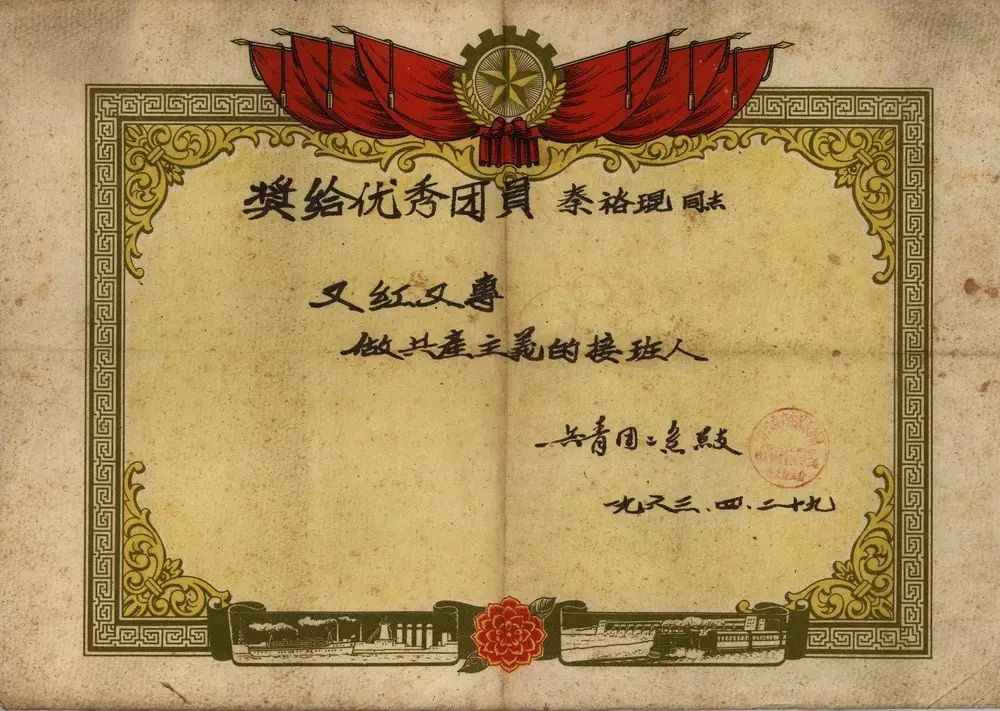 獎給优秀团員 秦裕琨同志
又红又專
做共產主義的接班人
共青团二总支
一九六三.四.二十九